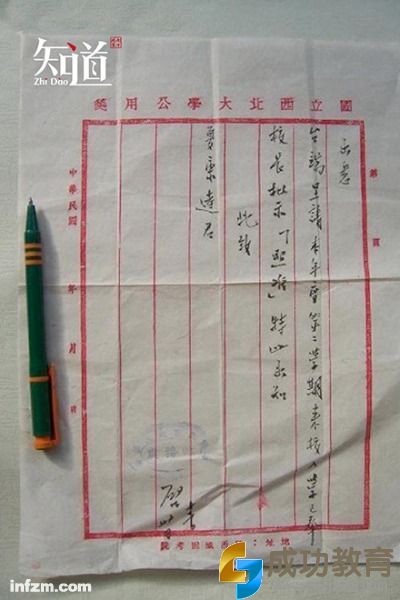 知道
Zhi Dao
國立西北大學公用箋
第 頁
台端呈請本年 第二學期來校入學已奉
校長批示「照准」特此函知
此致
夏 達君
啓
中華民國 年 月 日
地址：
infzm.com
成功教育